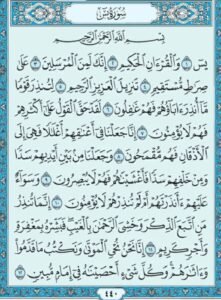 سُورَةُ يسٓ
بِسْمِ اللَّهِ الرَّحْمَٰنِ الرَّحِيمِ
يسٓ ١ وَالْقُرْءَانِ الْحَكِيمِ ٢ إِنَّكَ لَمِنَ الْمُرْسَلِينَ ٣ عَلَىٰ
صِرَٰطٍ مُّسْتَقِيمٍ ٤ تَنزِيلَ الْعَزِيزِ الرَّحِيمِ ٥ لِتُنذِرَ قَوْمًا
مَّآ أُنذِرَ ءَابَآؤُهُمْ فَهُمْ غَٰفِلُونَ ٦ لَقَدْ حَقَّ الْقَوْلُ عَلَىٰٓ أَكْثَرِهِمْ
فَهُمْ لَا يُؤْمِنُونَ ٧ إِنَّا جَعَلْنَا فِىٓ أَعْنَٰقِهِمْ أَغْلَٰلًا فَهِىَ إِلَى
الْأَذْقَانِ فَهُم مُّقْمَحُونَ ٨ وَجَعَلْنَا مِنۢ بَيْنِ أَيْدِيهِمْ سَدًّا
وَمِنْ خَلْفِهِمْ سَدًّا فَأَغْشَيْنَٰهُمْ فَهُمْ لَا يُبْصِرُونَ ٩ وَسَوَآءٌ
عَلَيْهِمْ ءَأَنذَرْتَهُمْ أَمْ لَمْ تُنذِرْهُمْ لَا يُؤْمِنُونَ ١٠ إِنَّمَا تُنذِرُ
مَنِ اتَّبَعَ الذِّكْرَ وَخَشِىَ الرَّحْمَٰنَ بِالْغَيْبِ ۖ فَبَشِّرْهُ بِمَغْفِرَةٍ
وَأَجْرٍ كَرِيمٍ ١١ إِنَّا نَحْنُ نُحْىِ الْمَوْتَىٰ وَنَكْتُبُ مَا قَدَّمُوا۟
وَءَاثَٰرَهُمْ ۚ وَكُلَّ شَىْءٍ أَحْصَيْنَٰهُ فِىٓ إِمَامٍ مُّبِينٍ ١٢
٤٤٠